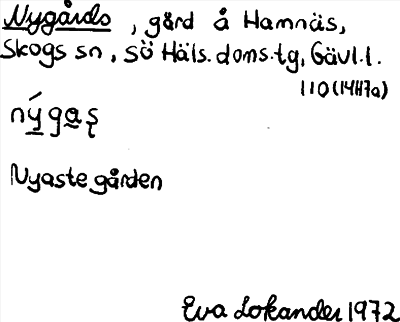 Nygårds, gård å Hamnäs,
Skogs sn, sö Häls. doms.tg, Gävl.l.
110 (14H7a)
nýgaş
Nyaste gården
Eva Lokander 1972